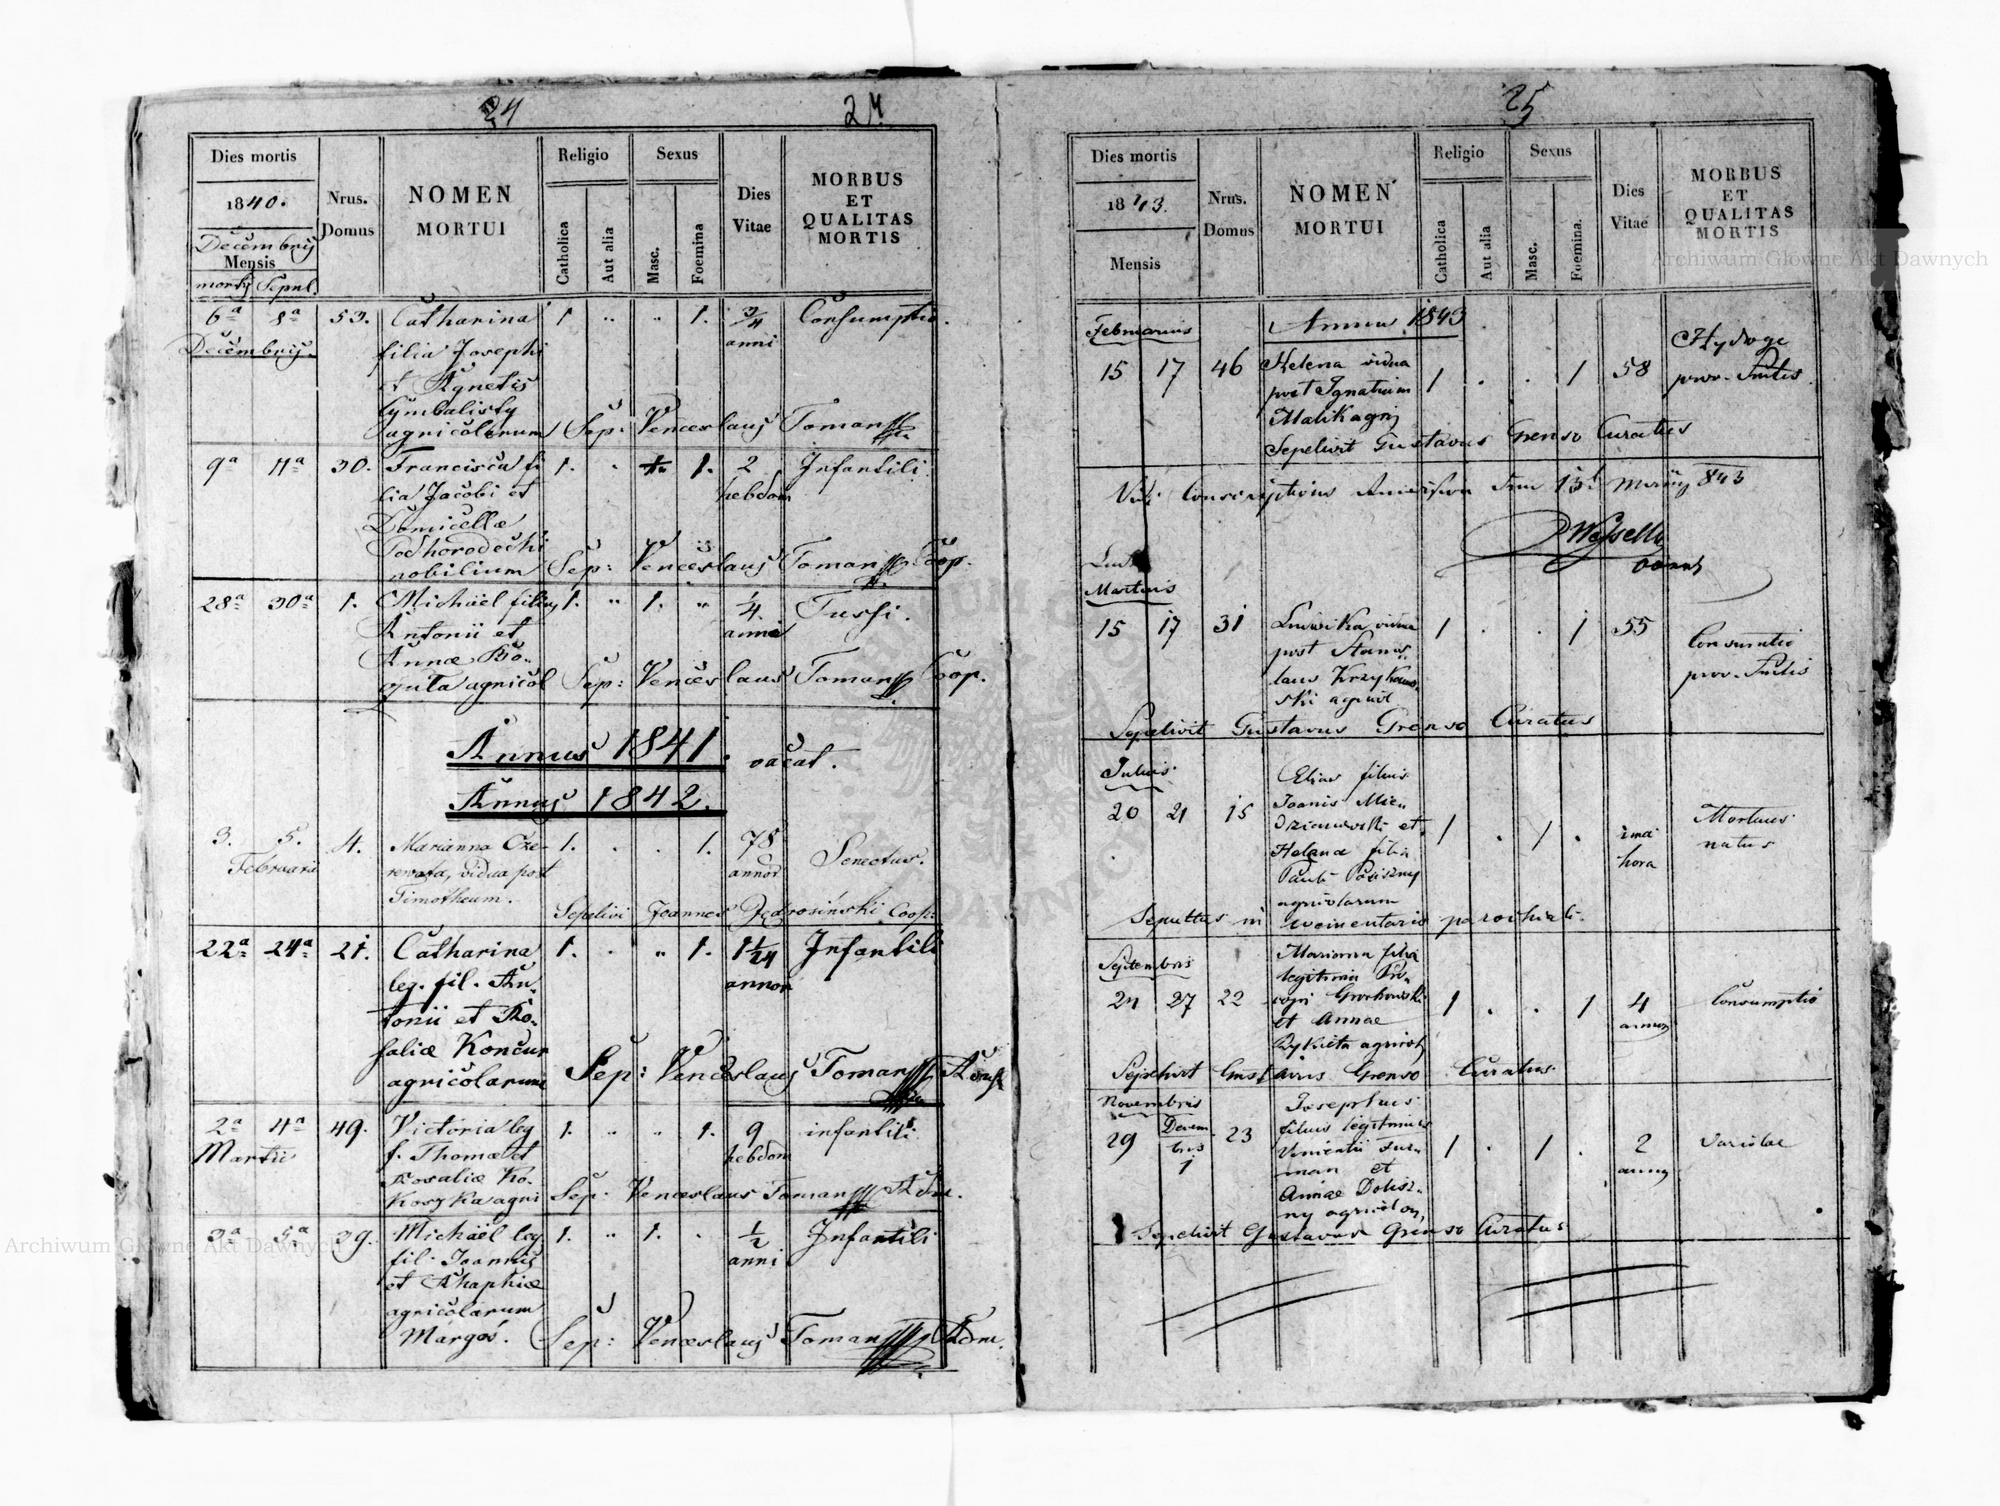 24
24
Dies mortis
1840.
Decembrij
Mensis
mortij Sepul.
Nrus.
Domus
NOMEN
MORTUI
Religio
Catholica
Aut alia
Sexus
Masc.
Foemina
Dies
Vitae
MORBUS
ET
QUALITAS
MORTIS
6ª 8ª 53. Catharina 1 " " 1. 3/4 Consumptio.
Decembrij. anni
filia Josephi
et Agnetis
Cymbalisty
agricolarum Sep: Venceslaus Toman
9ª 11ª 30. Francisca fi 1. " 1. 2 Infantili
lia Jacobi et hebdom
Domicellæ
Podhorodecki
nobilium Sep: Venceslaus Toman Coop.
28ª 30ª 1. Michaël filius 1. " 1. " 1/4 Tussi.
Antonii et anni
Annæ Ro-
guta agricol Sep: Venceslaus Toman Coop.
Annus 1841. vacat.
Annus 1842.
3. 5. 4. Marianna Cze- 1. . . 1. 78 Senectus.
Februarii rewata, vidua post annor
Timotheum.
Sepelivi Joannes Jedrosiński Coop:
22ª 24ª 21. Catharina 1. . " 1. 1 1/24 Infantili
leg. fil. An- annor
tonii et Ro-
saliæ Koncur
agricolarum Sep: Venceslaus Toman
2ª 4ª 49. Victoria leg 1. " " 1. 9 infantili
Martii f. Thomæ et hebdom
Rosaliæ Ko-
koszka agri Sep: Venceslaus Toman Adm.
3ª 5ª 39. Michaël leg 1. " 1. . 1/2 Infantili
fil. Joannis anni
et Ahaphiæ
agricolarum
Margos. Sep: Venceslaus Toman Adm.
25
Dies mortis
1843.
Mensis
Nrus.
Domus
NOMEN
MORTUI
Religio
Catholica
Aut alia
Sexus
Masc.
Foemina.
Dies
Vitae
MORBUS
ET
QUALITAS
MORTIS
Februarius Annus 1843
15 17 46 Helena vidua 1 . . 1 58 Hydrope
post Ignatium
Malik agrij
Sepelivit Gustavus Grenso Curatus
Martius
15 17 31 Ludwika vidua 1 . . 1 55 Consumtio
post Stanis-
laus Krzyżanow-
ski agricol
Sepelivit Gustavus Grenso Curatus
Julius
20 21 15 Elias filius 1 . 1 . ima hora Mortuus natus
Joanis Mie-
dzianowski et
Helenæ filia
Pauli
agricolarum
Sepultus in coementario parochiali.
Septembris
24 27 22 Marianna filia 1 . . 1 4 annor Consumptio
legitima Pro-
copi Grochowski
et Annae
Rykieta agricol
Sepelivit Gustavus Grenso Curatus
Novembris
29 Decembris 1 23 Josephus 1 . 1 . 2 annor variolae
filius legitimus
Vincentii Fur-
man et
Annae Dolisz-
ny agricolar
Sepelivit Gustavus Grenso Curatus
Archiwum Główne Akt Dawnych
Archiwum Główne Akt Dawnych